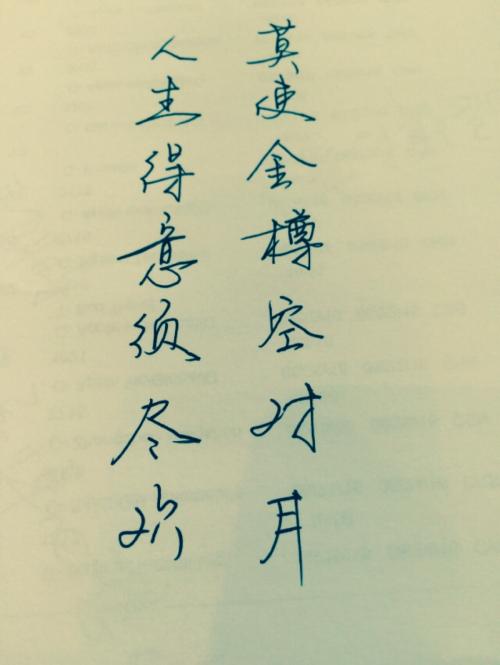 莫使金樽空对月
人生得意须尽欢